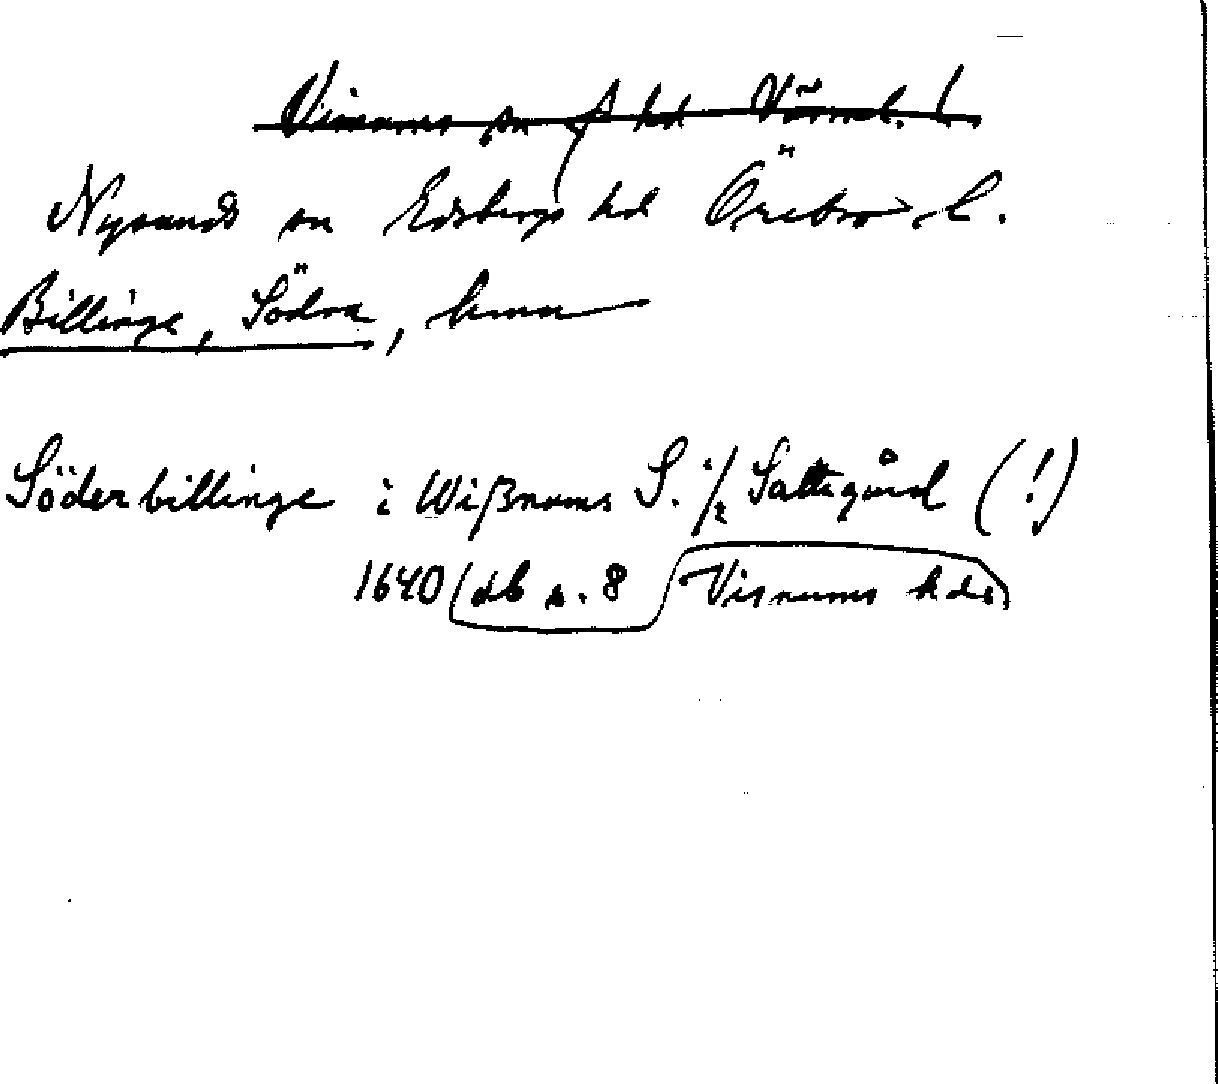 Visnums sn f hd Värml. l.
Nysunds sn Edsbergs hd Örebro l.
Billinge, Södra, hmn
Söderbillinge i Wißnums S. 1/2 Satte gård (!)
1640 (db s. 8 Visnums hds)